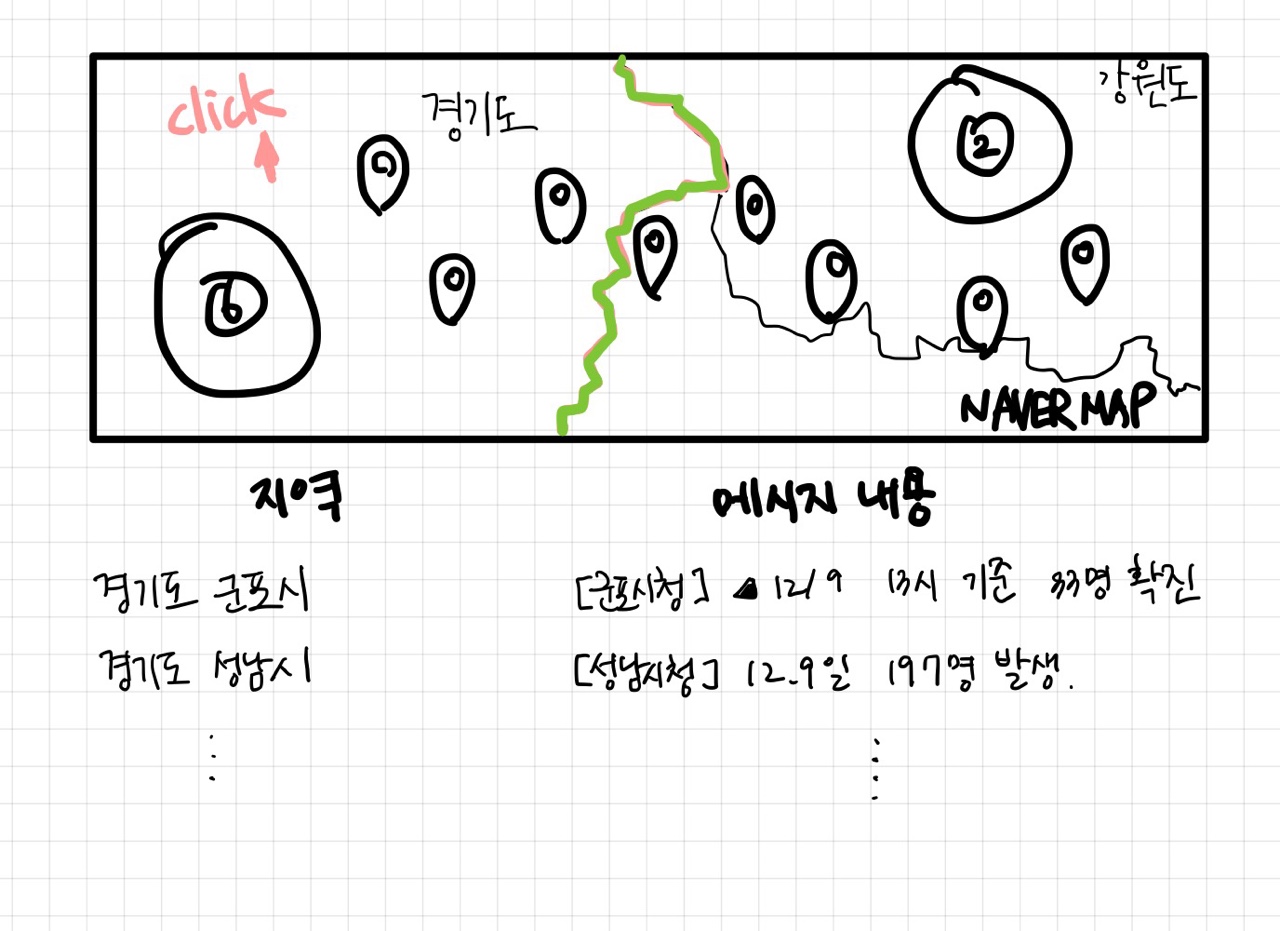 click
경기도
강원도
2
6
NAVER MAP
지역 메시지 내용
경기도 군포시 [군포시청] ▲ 12/9 13시 기준 33명 확진
경기도 성남시 [성남시청] 12.9일 197명 발생.